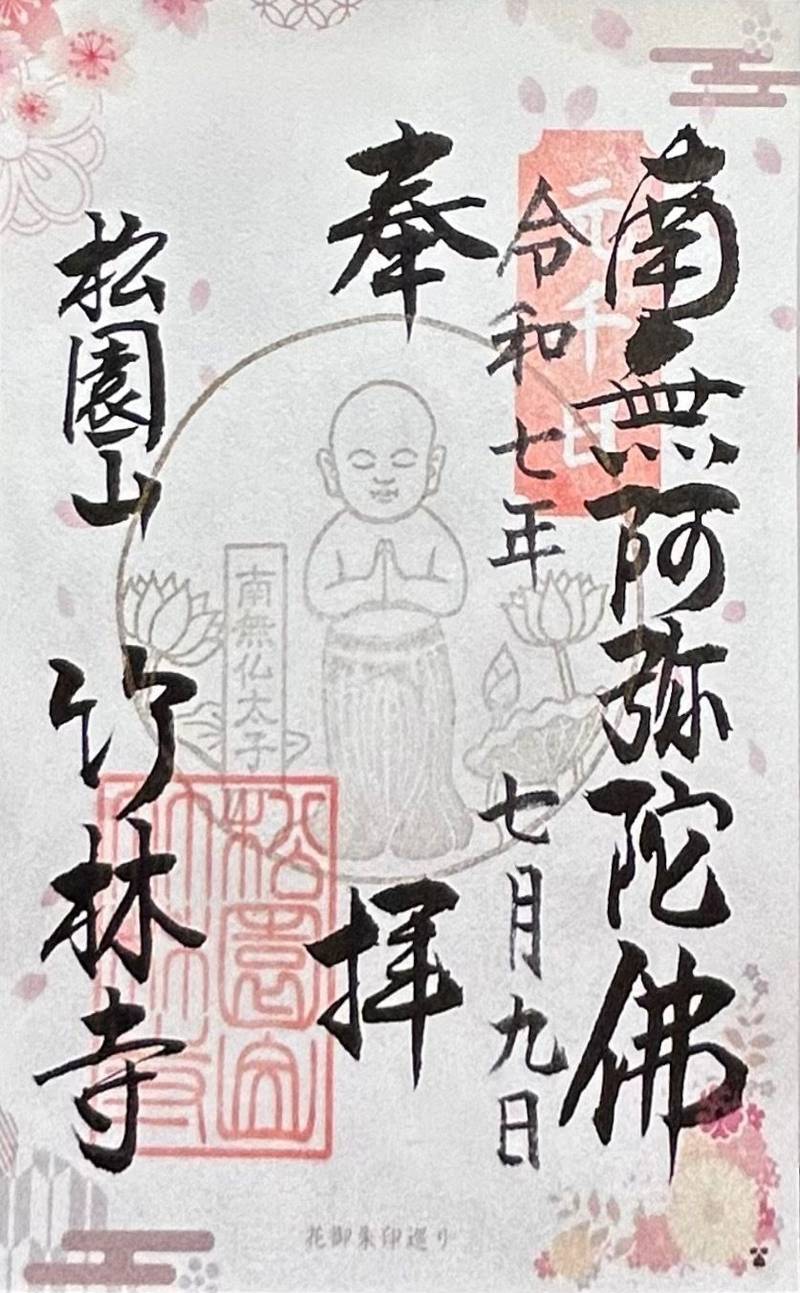 南無阿弥陀佛
令和七年 七月九日
奉拝
南無仏太子
松園山
竹林寺
松園山
竹林寺
花御朱印巡り